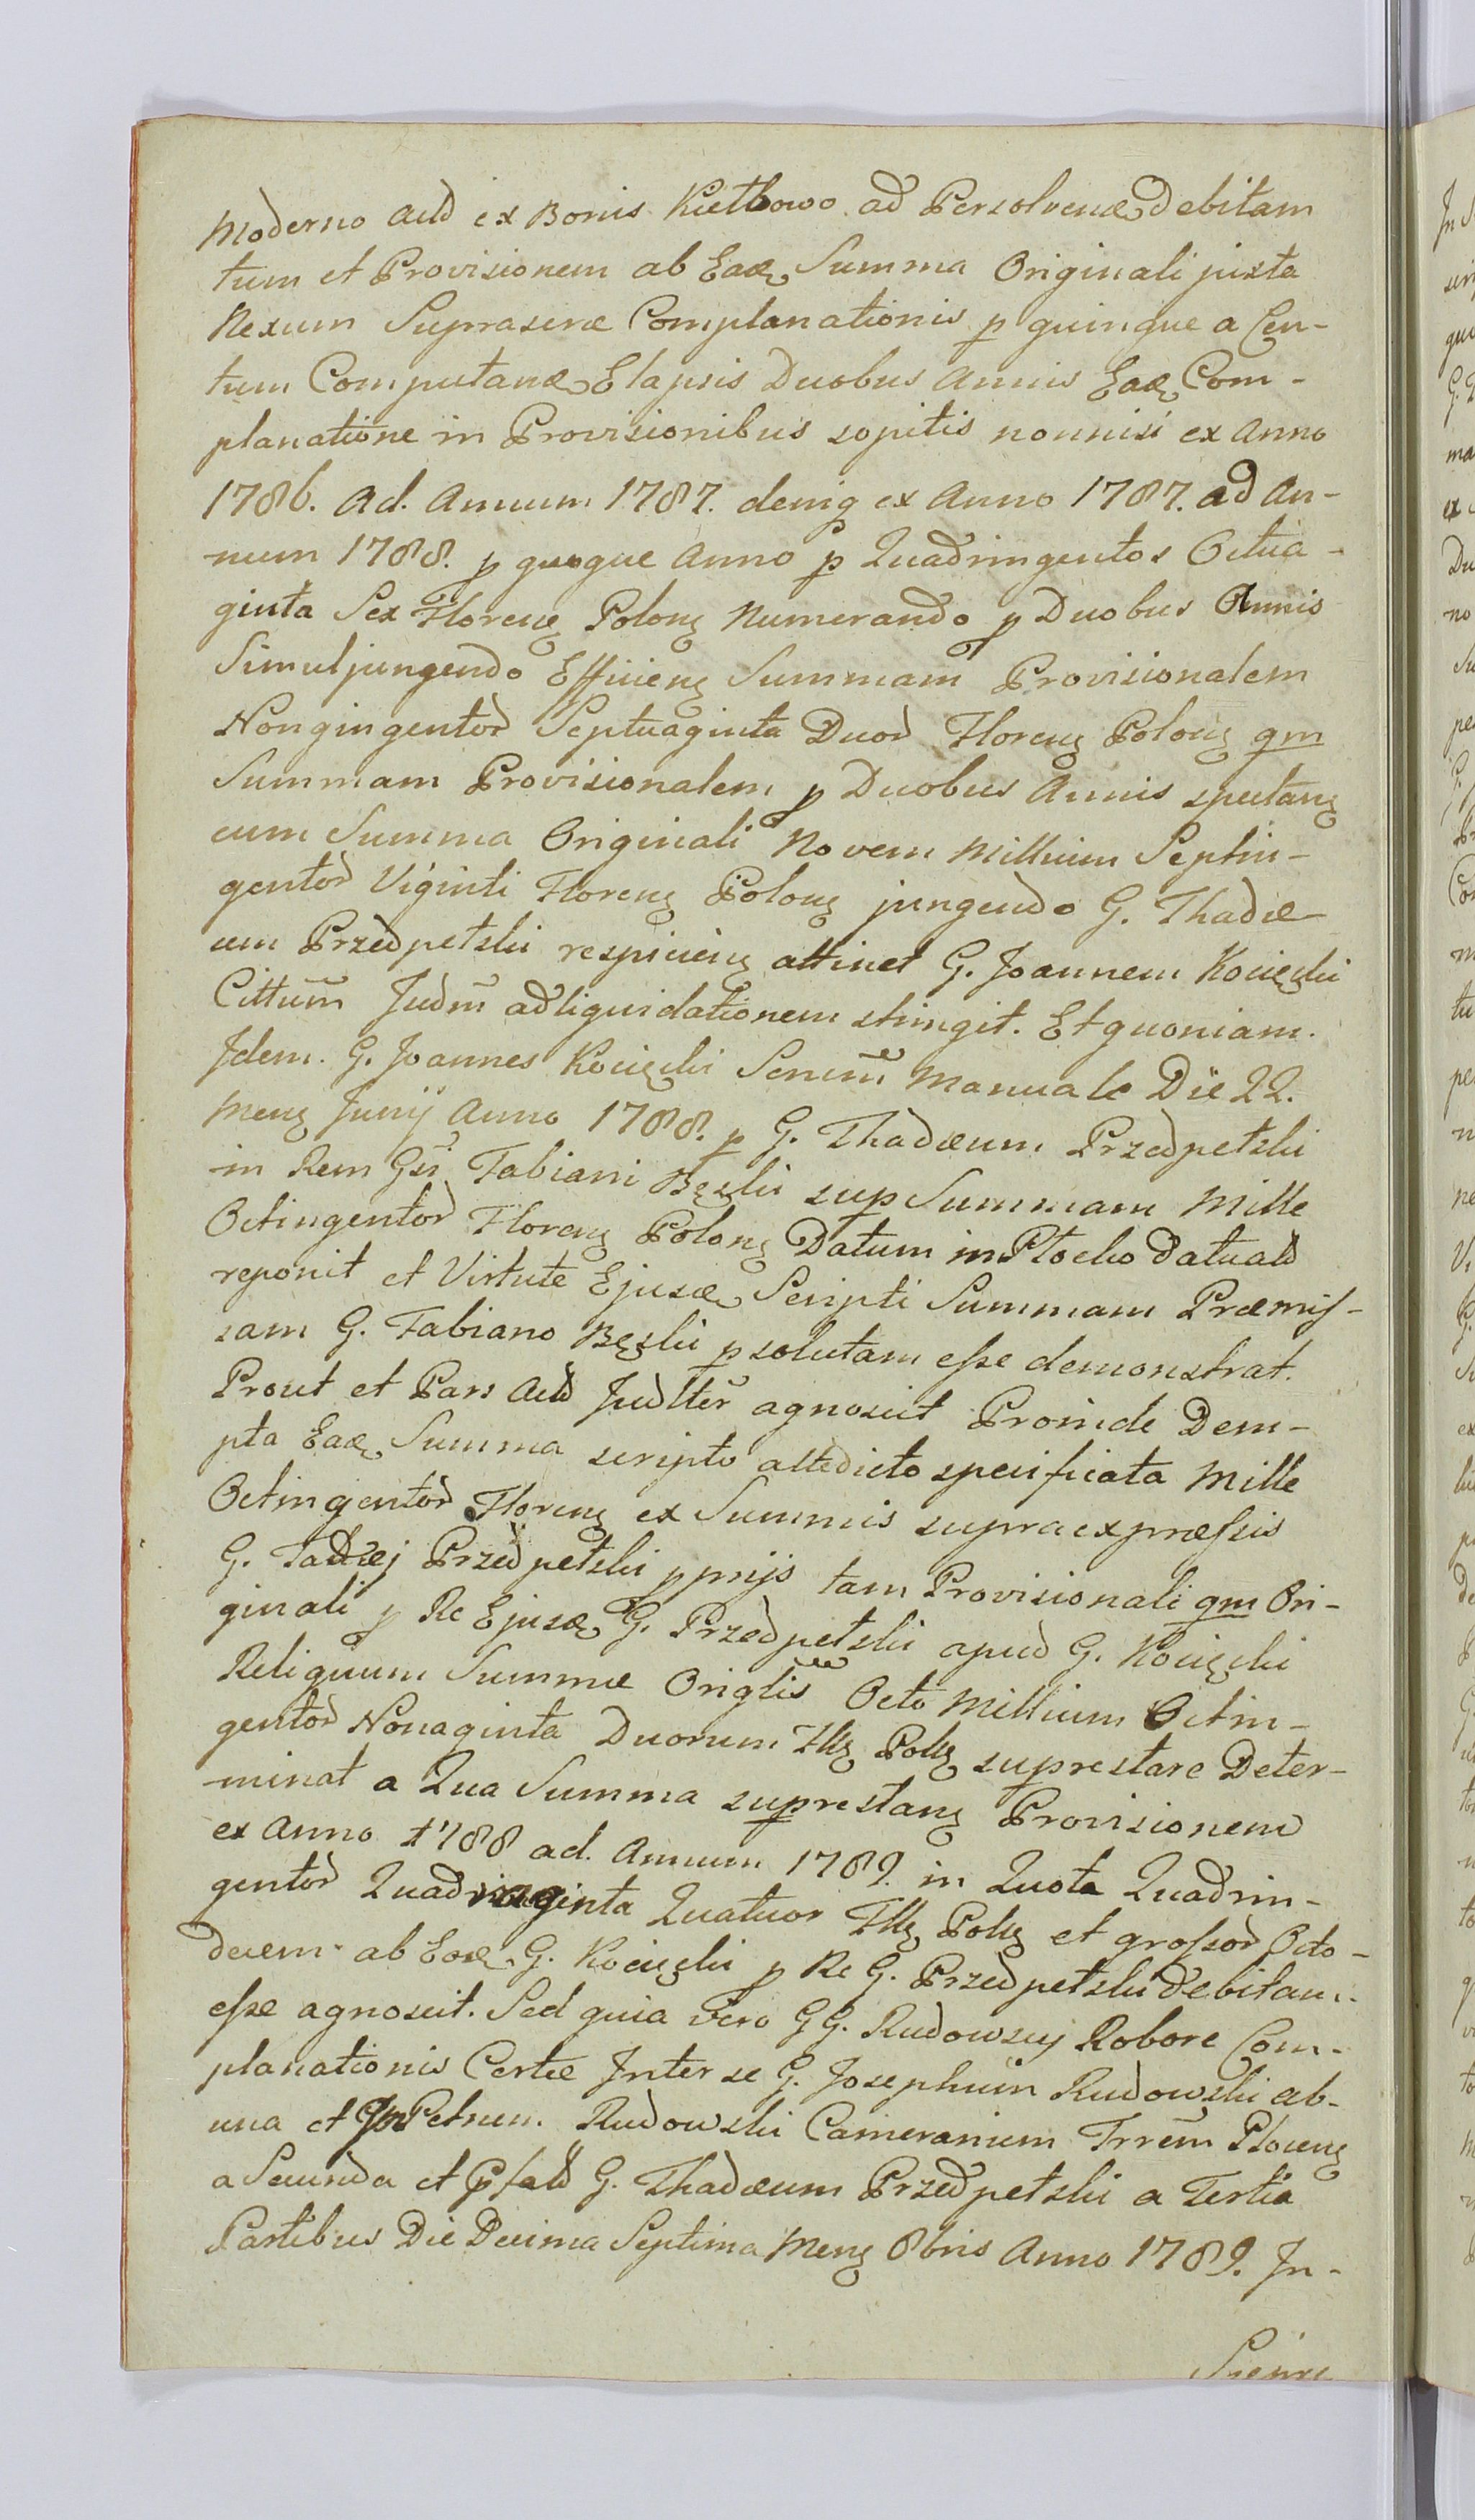 Moderno Actd ex Bonis Kiełbowo ad Persolvend Debitam
tum et Provisionem ab Ead Summa Originali juxta
Nexum Suprascrae Complanationis p quinque a Cen-
tum Computand Elapsis Duobus Annis Ead Com-
planatione in Provisionibus sopitis nonnisi ex Anno
1786. Ad. Annum 1787. deniq ex Anno 1787. ad An-
num 1788. p quoque Anno p Quadringentos Octua-
ginta Sex Floreng Polong Numerando p Duobus Annis
Simul jungendo Efficieng Summam Provisionalem
Nongingentor Septuaginta Duor Floreng Polong qm
Summam Provisionalem p Duobus Annis spectang
cum Summa Originali Novem Millium Septin-
gentor Viginti Floreng Polong jungendo G. Thadæ-
um Przedpełski respicieng attinet G. Joannem Kocięcki
Cittum Judm ad liquidationem stringit. Et quoniam.
Idem. G. Joannes Kocięcki Scrium Manuale Die 22.
Meng Junij Anno 1788. p G. Thadæum Przedpełski
in Rem Gsi Fabiani Bęski sup Summam Mille
Octingentor Floreng Polong Datum in Płocko Datuald
reponit et Virtute Ejusd Scripti Summam Præmis-
sam G. Fabiano Bęski p solutam esse demonstrat.
Prout et Pars Actd Judlter agnoscit Proinde Dem-
pta Ead Summa scripto attedicto specificata Mille
Octingentor Floreng ex Summis supra expræssis
G. Tadæj Przedpełski p prijs tam Provisionali qm Ori-
ginali p Re Ejusd G. Przedpełski apud G. Kocięcki
Reliquum Summæ Origlis Octo Millium Octin-
gentor Nonaginta Duorum Fllg Pollg suprestare Deter-
minat a Qua Summa suprestang Provisionem
ex Anno 1788 ad. Annum 1789. in Quota Quadrin-
gentor Quadraginta Quatuor Fllg Pollg et grossor Octo-
decem. ab Eod G. Kocięcki p Re G. Przedpełski Debitam.
esse agnoscit. Sed quia vero GG. Rudowscy Robore Com-
planationis Certæ Inter se G. Josephum Rudowski ab-
una et Petrum. Rudowski Camerarium Trrem Ploceng
a Secunda et G. Thadæum Przedpełski a Tertia
Partibus Die Decima Septima Meng 8bris Anno 1789. In-